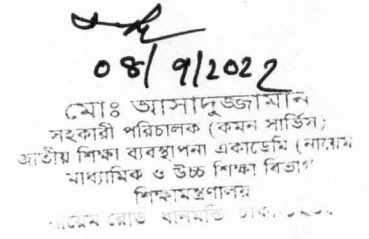 08/9/2022
মোঃ আসাদুজ্জামান
সহকারী পরিচালক (কমন সার্ভিস)
জাতীয় শিক্ষা ব্যবস্থাপনা একাডেমি (নায়েম
মাধ্যমিক ও উচ্চ শিক্ষা বিভাগ
শিক্ষামন্ত্রণালয়
নায়েম রোড ধানমন্ডি ঢাকা